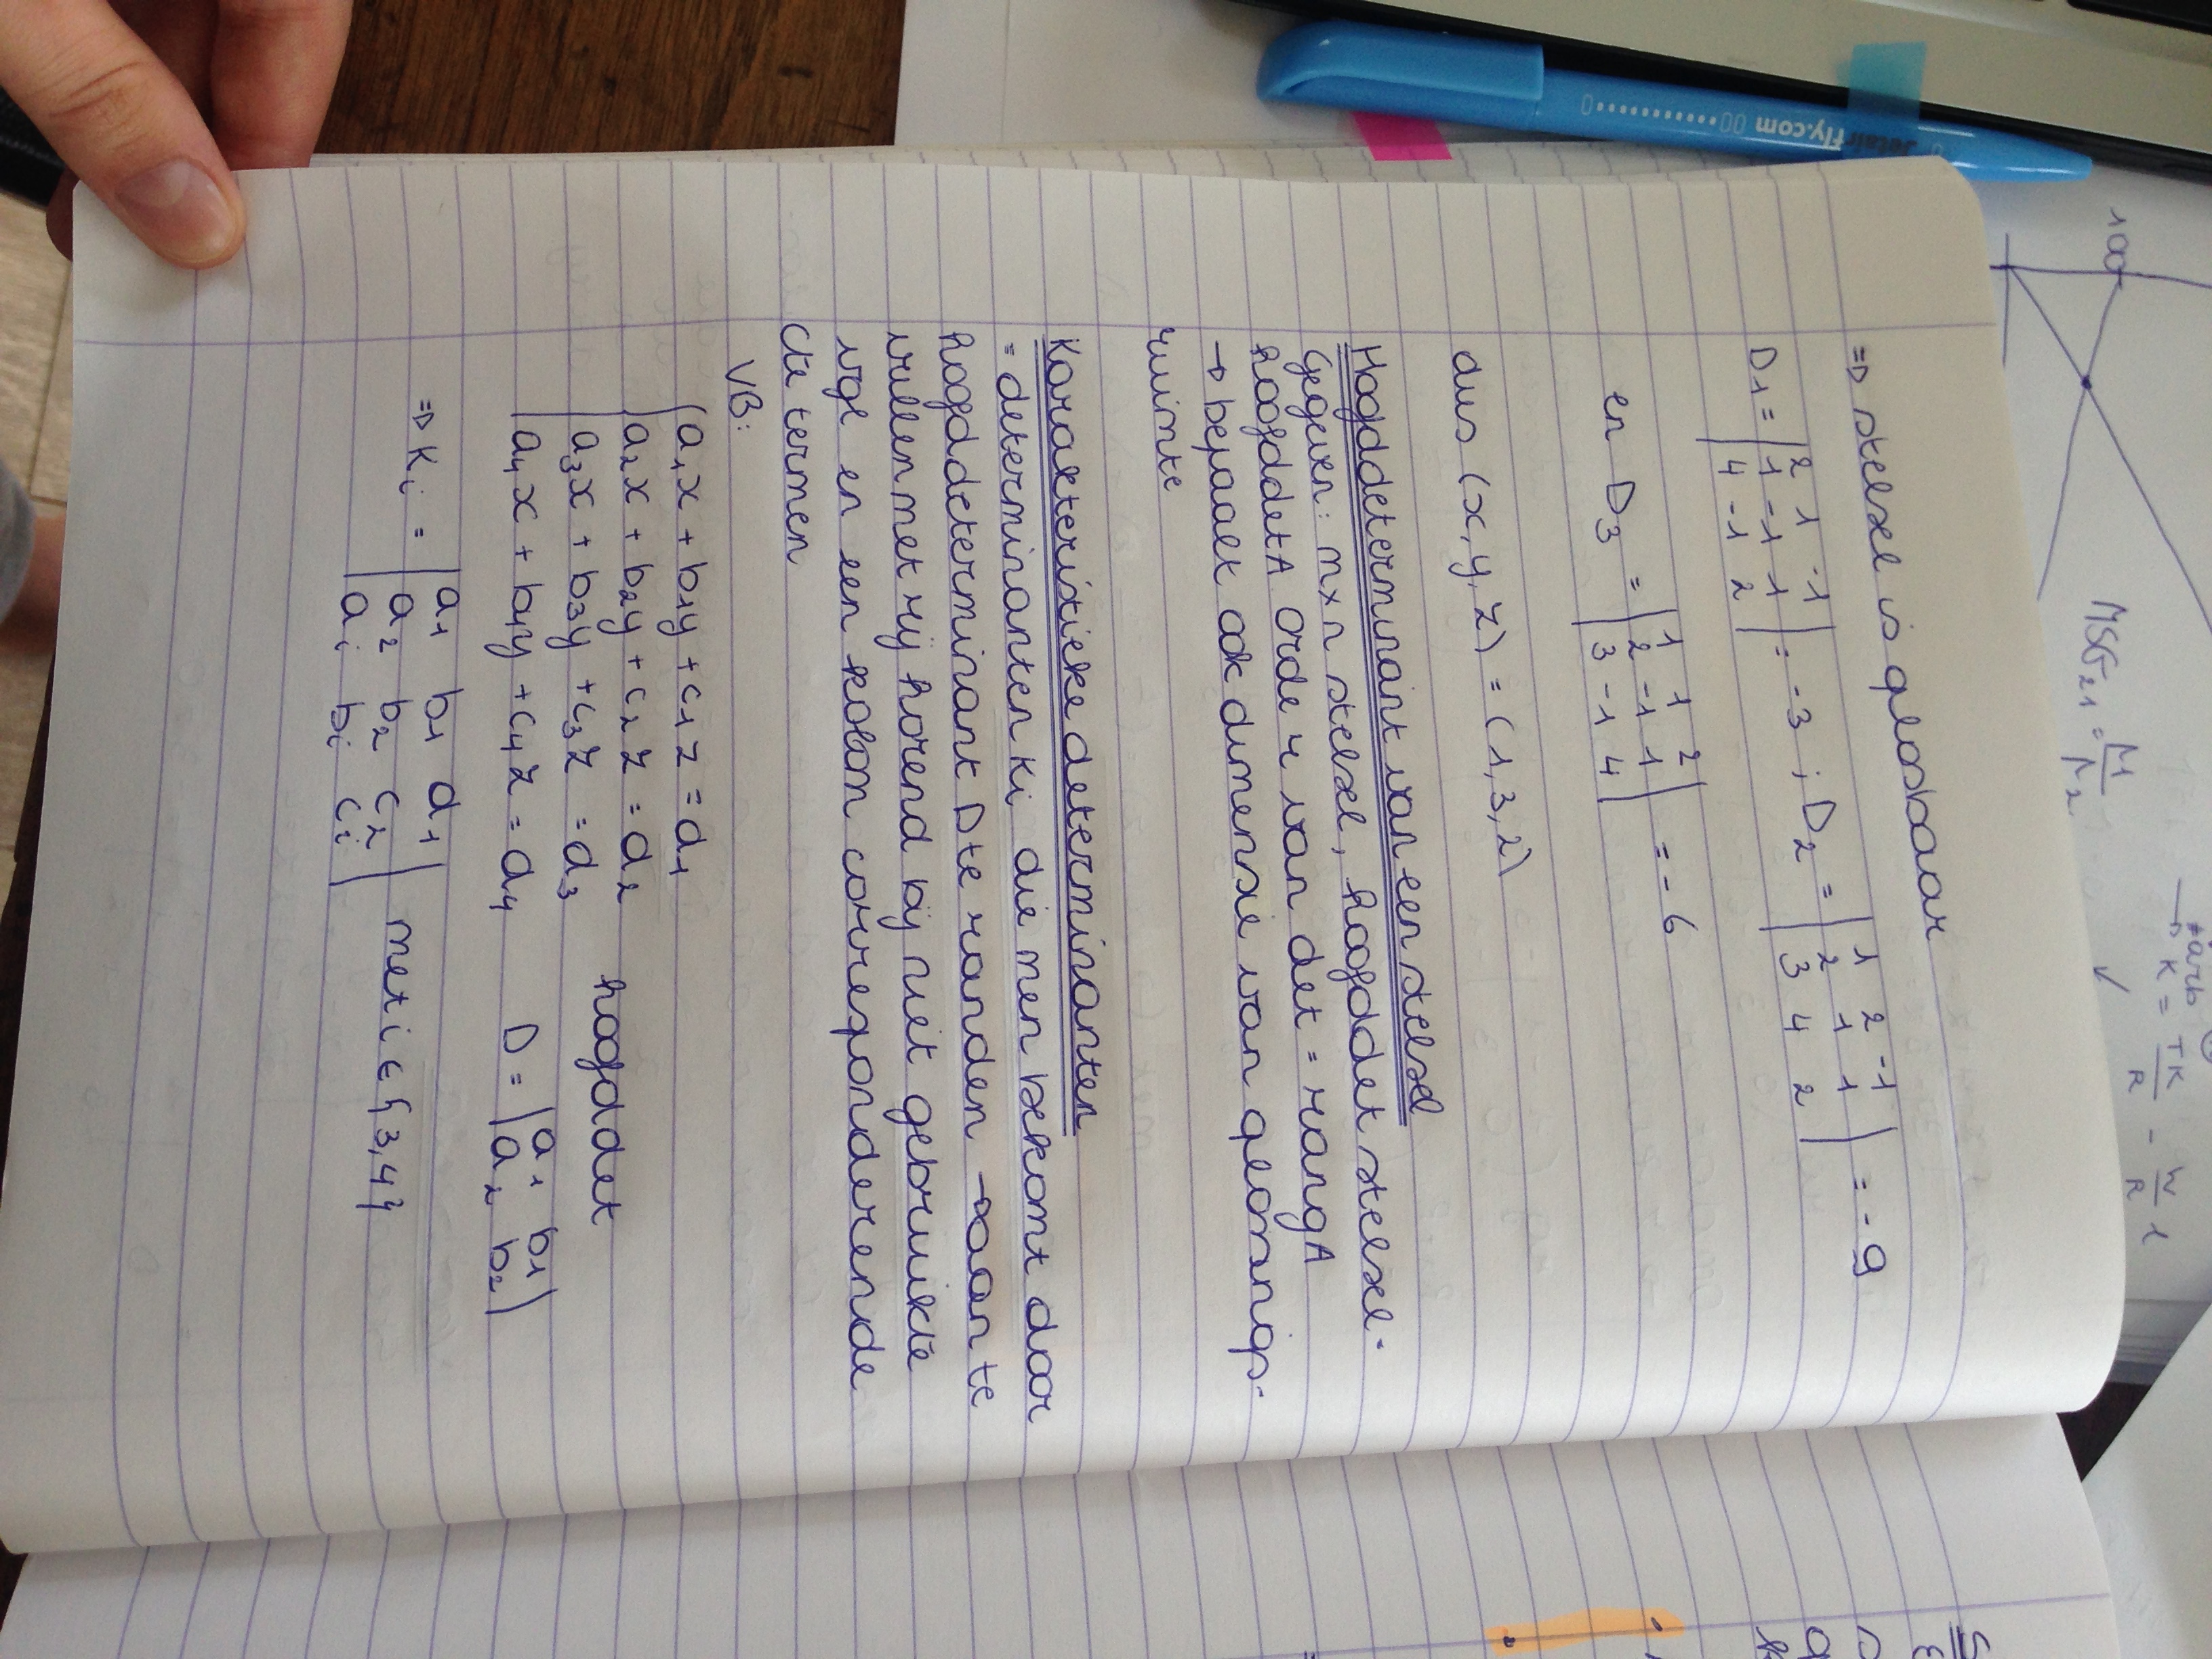 ⇒ stelsel is oplosbaar
D₁ = | 2 1 -1 | = -3 ; D₂ = | 1 2 -1 | = -9
| 1 -1 1 | | 2 1 1 |
| 4 -1 2 | | 3 4 2 |
en D₃ = | 1 1 2 | = -6
| 2 -1 1 |
| 3 -1 4 |
dus (x, y, z) = (1, 3, 2)
Hoofddeterminant van een stelsel
Gegeven: m x n stelsel, hoofddet stelsel =
hoofddet A Orde r van det = rang A
→ bepaalt ook dimensie van oplossings-
ruimte
Karakteristieke determinanten
= determinanten Ki die men bekomt door
hoofddeterminant D te randen → aan te
vullen met rij horend bij niet gebruikte
vgl en een kolom corresponderende
cte termen
VB:
a₁x + b₁y + c₁z = d₁
a₂x + b₂y + c₂z = d₂ hoofddet
a₃x + b₃y + c₃z = d₃
a₄x + b₄y + c₄z = d₄ D = | a₁ b₁ |
| a₂ b₂ |
⇒ Kᵢ = | a₁ b₁ d₁ |
| a₂ b₂ c₂ | met i ∈ {3,4}
| aᵢ bᵢ cᵢ |
jetairfly.com
100
MSG₂₁ = M/M₂
K = TK/R - W/R 1